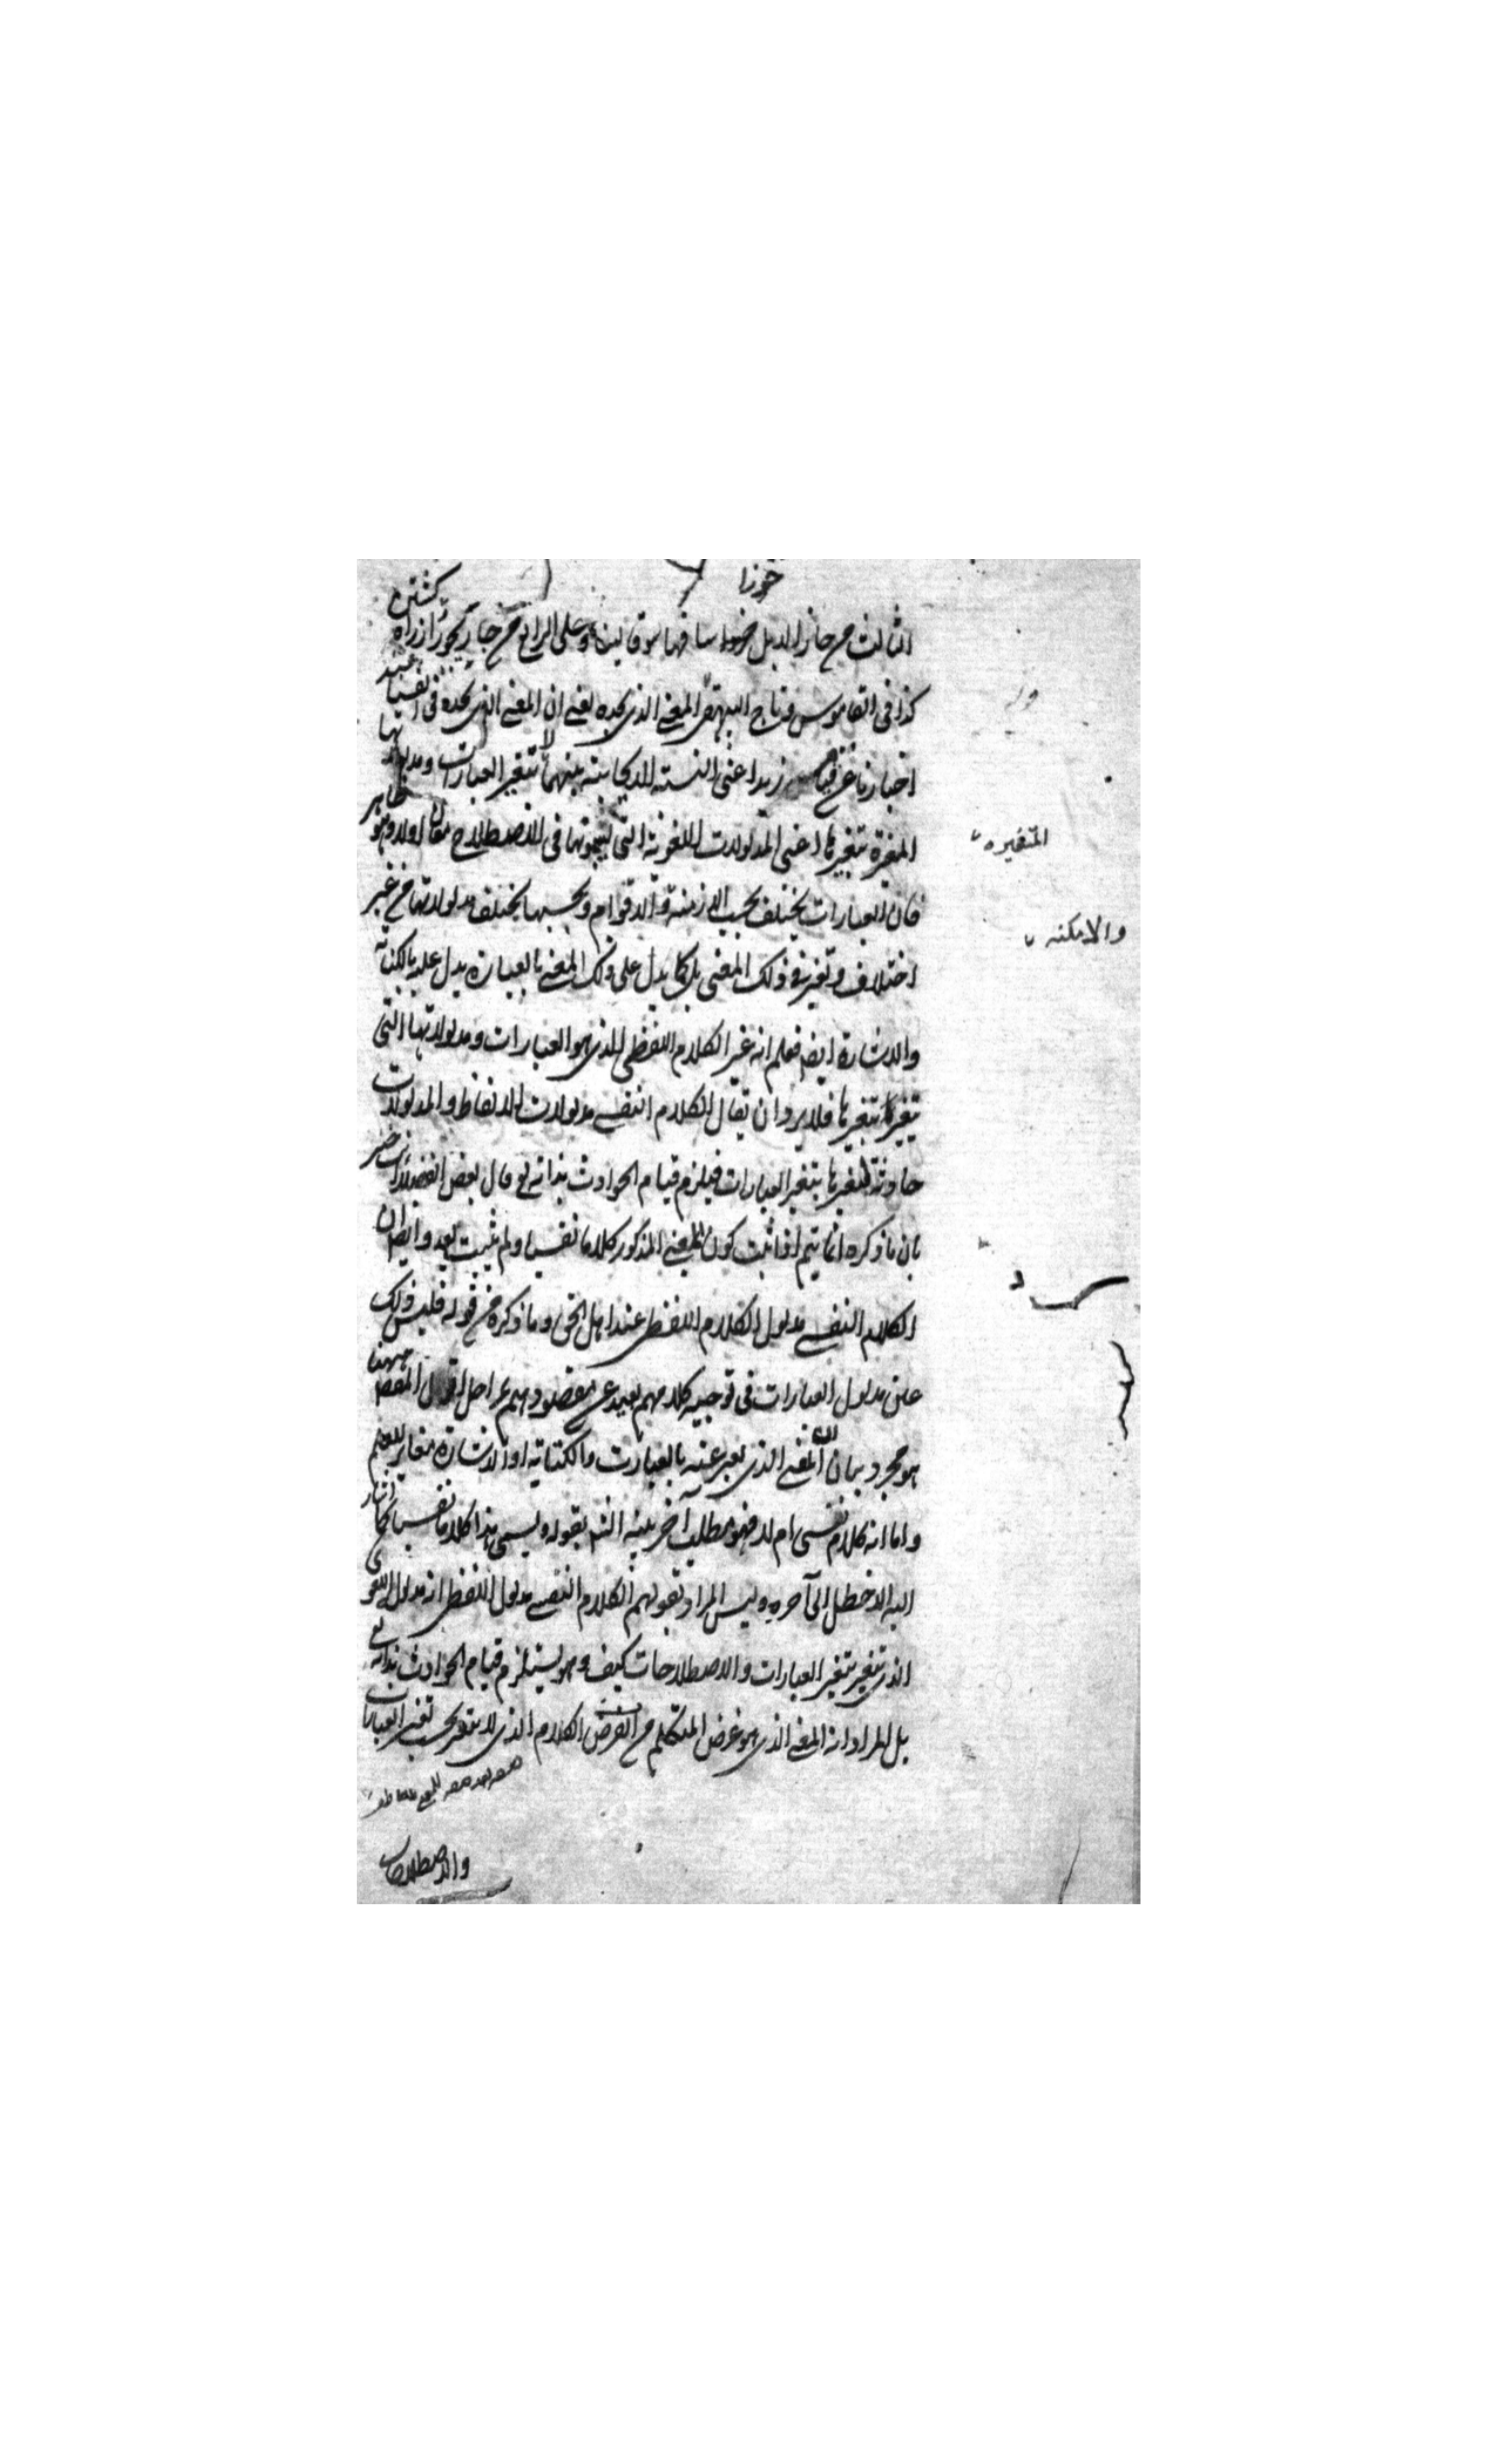 حوزا
الثالث من حاز الابل ساقها سوقا لينا وعلى الرابع من جاز يجوز از راه كشتن
كذا فى القاموس وتاج البيهقى المعنى الذى نجده يعنى ان المعنى الذى نجده فى انفسنا عند
اخبارنا عن قيام زيد اعنى النسبة الايجابية بينهما لا تتغير بتغير العبارات ومدلولاتها
المتغيرة بتغيرها اعنى المدلولات اللغوية التى يسمونها فى الاصطلاح معانى اول وهو ظاهر
فان العبارات يختلف بحسب الازمنة والاقوام وبحسبها يختلف مدلولاتها من غير
اختلاف وتغير فى ذلك المعنى بل كما يدل على ذلك المعنى بالعبارة يدل عليه بالكتابة
والاشارة ايضا فعلم انه غير الكلام اللفظى الذى هو العبارات ومدلولاتها التى
يتغير بتغيرها فلا يرد ان يقال الكلام النفسى مدلولات الالفاظ والمدلولات
حادثة لتغيرها بتغير العبارات فيلزم قيام الحوادث بذاته تع قال بعض الفضلاء انت خبير
بان ما ذكره انما يتم اذا ثبت كون المعنى المذكور كلاما نفسيا ولم يثبت بعد وايضا ان
الكلام النفسى مدلول الكلام اللفظى عند اهل الحق وما ذكره من قوله فليس ذلك
عين مدلول العبارات فى توجيه كلامهم بعيد عن مقصودهم بمراحل اقول المقصد ههنا
هو مجرد بيان ان المعنى الذى يعبر عنه بالعبارت والكتابة او الاشارة مغاير للعلم
واما انه كلام نفسى ام لا فهو مطلب آخر بينه الش بقوله ويسمى هذا كلاما نفسيا كما اشار
اليه الاخطل الى آخره وليس المراد بقولهم الكلام النفسى مدلول اللفظى انه مدلول اللغوى
الذى يتغير بتغير العبارات والاصطلاحات كيف وهو يستلزم قيام الحوادث بذاته تع
بل المراد انه المعنى الذى هو غرض المتكلم من الكلام الذى لا يتغير بحسب تغير العبارات
والاصطلاحات
المتغيره
والامكنه